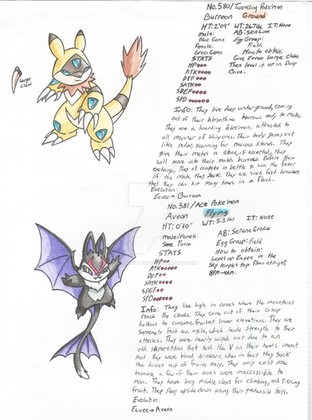 No.580/Tunneling Pokemon
Burreon Ground
HT: 2'04" WT: 26.7 lbs IT: None
Male: AB: Sea Lion
Blue Gems Egg Group:
Female: Field
Green Gems How to obtain:
STATS Give Eevee Large Claw
HP Then level it up in Dup
ATK Cave.
DEF
SATK
SDEF
SPD
Large
claw
Info: They live deep underground, coming
out of their labyrinthine burrows only to mate.
They are a hoarding Pokemon, attracted to
all manner of shinyness. Their body gems act
like radar, scanning for precious stones. They
give their mates a stone, if accepted, they
will move into their mates burrow. Before their
exchange, they compete in battle to win the favor
of the mate they seek. They are such fast breeders
that they can hit many times in a flash.
Evolution:
Eevee → Burreon
No.581/Ace Pokemon
Aveon Flying
HT: 0'10" WT: 5.3 lbs IT: None
Male/Female: AB: Serene Grace
Same Form Egg Group: Field
STATS How to obtain:
HP Level up Eevee in the
ATK Sky Temple top floor at night,
DEF
SATK
SDEF
SPD
Info: They live high in caves where the mountains
reach the clouds. They come out of their craggy
hollows to consume fruit at lower elevations. They are
extremely fast and agile, which lends strength to their
attacks. They were nearly wiped out due to an
old superstition that said the V on their heads meant
that they were blood drinkers, when in fact they suck
the juices out of fruits only. They only exist now
because a few of their caves were inaccessible to
man. They have long middle claws for climbing and piercing
fruit. They sleep upside down using their prehensile tails.
Evolution:
Eevee → Aveon